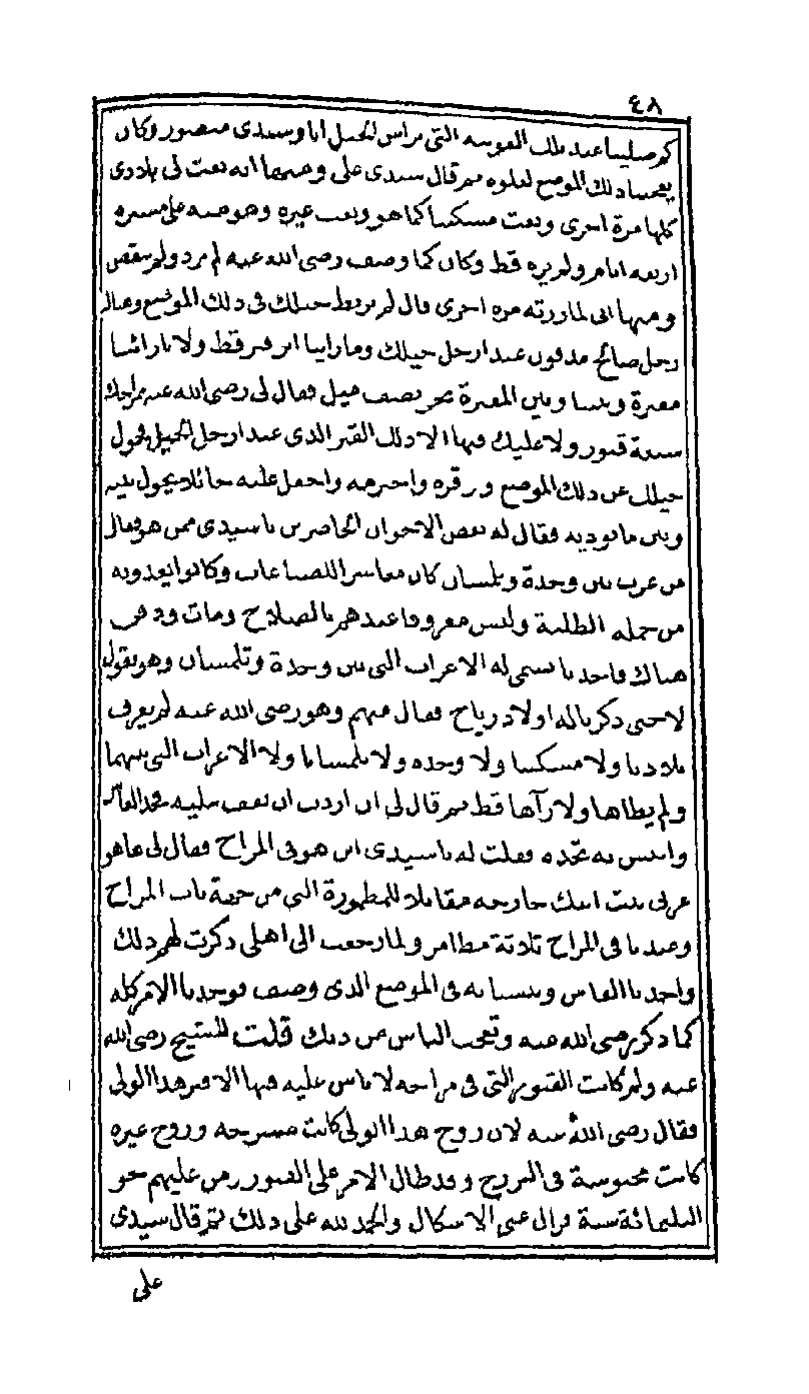 ٤٨
كم صلينا عند تلك القوسة التي براس الجبل انا وسيدي منصور وكان
يعجبنا ذلك الموضع لعلوه ثم قال سيدي علي ومنها انه نعت لي بلادي
كلها مرة اخرى ونعت مسكننا كما هو ونعت غيره وهو منه على مسيرة
اربعة ايام ولم يره قط وكان كما وصف رضي الله عنه لم يزد ولم ينقص
ومنها اني لما زرته مرة اخرى قال لم تربط خيلك في ذلك الموضع وهناك
رجل صالح مدفون عند ارجل خيلك وما راينا اثر قبر قط ولا بازائنا
مقبرة وبيننا وبين المقبرة نحو نصف ميل فقال لي رضي الله عنه بمراحك
سبعة قبور ولا عليك فيها الا ذلك القبر الذي عند ارجل الخيل فحول
خيلك عن ذلك الموضع ووقره واحترمه واجعل عليه حائلا يحول بينه
وبين ما يوذيه فقال له بعض الاخوان الحاضرين يا سيدي ممن هو فقال
من عرب بين وجدة وتلمسان كان معاسر اللصاعات وكانوا يعدونه
من جملة الطلبة وليس معروفا عندهم بالصلاح ومات ودفن
هناك فاخذنا نسمي له الاعراب التي بين وجدة وتلمسان وهو يقول
لا حتى ذكرنا له اولاد رياح فقال منهم وهو رضي الله عنه لم يعرف
بلادنا ولا مسكننا ولا وجدة ولا تلمسانا ولا الاعراب التي بينهما
ولم يطاها ولا رآها قط ثم قال لي ان اردت ان تقف عليه فخذ الفاس
وانبش به تجده فقلت له يا سيدي اين هو في المراح فقال لي ها هو
غربي بيت ابنك خارجه مقابلا للمطمورة التي من جهة باب المراح
وعندنا في المراح ثلاثة مطامر ولما رجعت الى اهلي ذكرت لهم ذلك
واخذنا الفاس ونبشنا به في الموضع الذي وصف فوجدنا الامر كله
كما ذكر رضي الله عنه وتعجب الناس من ذلك قلت للشيخ رضي الله
عنه ولم كانت القبور التي في مراحه لا باس عليه فيها الا قبر هذا الولي
فقال رضي الله عنه لان روح هذا الولي كانت مسرحة وروح غيره
كانت محبوسة في البرزخ وقد طال الامر على القبور ومر عليهم نحو
الثلثمائة سنة فزال عني الاشكال والحمد لله على ذلك ثم قال سيدي
علي